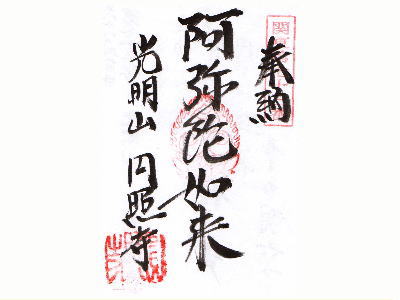 奉納
阿弥陀如来
光明山 円照寺